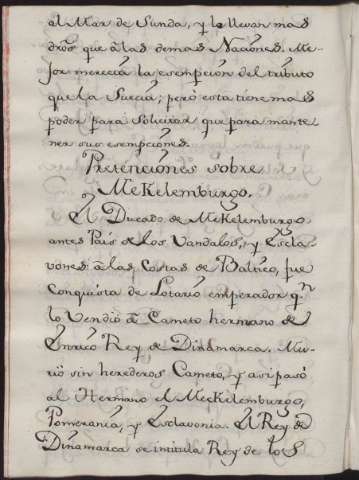 al Mar de Sunda, y lo llevan mas
dros que à las demas Naciones. Me-
jor merecia la esempcion del tributo
que la Suecia; però esta tiene mas
poder para solicitar que para mante-
ner sus esempciones.
Pretenciones sobre
MeKelemburgo.
El Ducado de MeKelemburgo,
antes Pais de los Vandalos, y Escla-
vones à las Costas de Baltico, fue
Conquista de Lotario emperador qn
lo Vendiò à Cameto hermano de
Enrico Rey de Dinamarca. Mu-
riò sin herederos Cameto, y asi pasò
al Hermano el MeKelemburgo,
Pomerania, y Esclavonia. El Rey de
Dinamarca se intitula Rey de los S